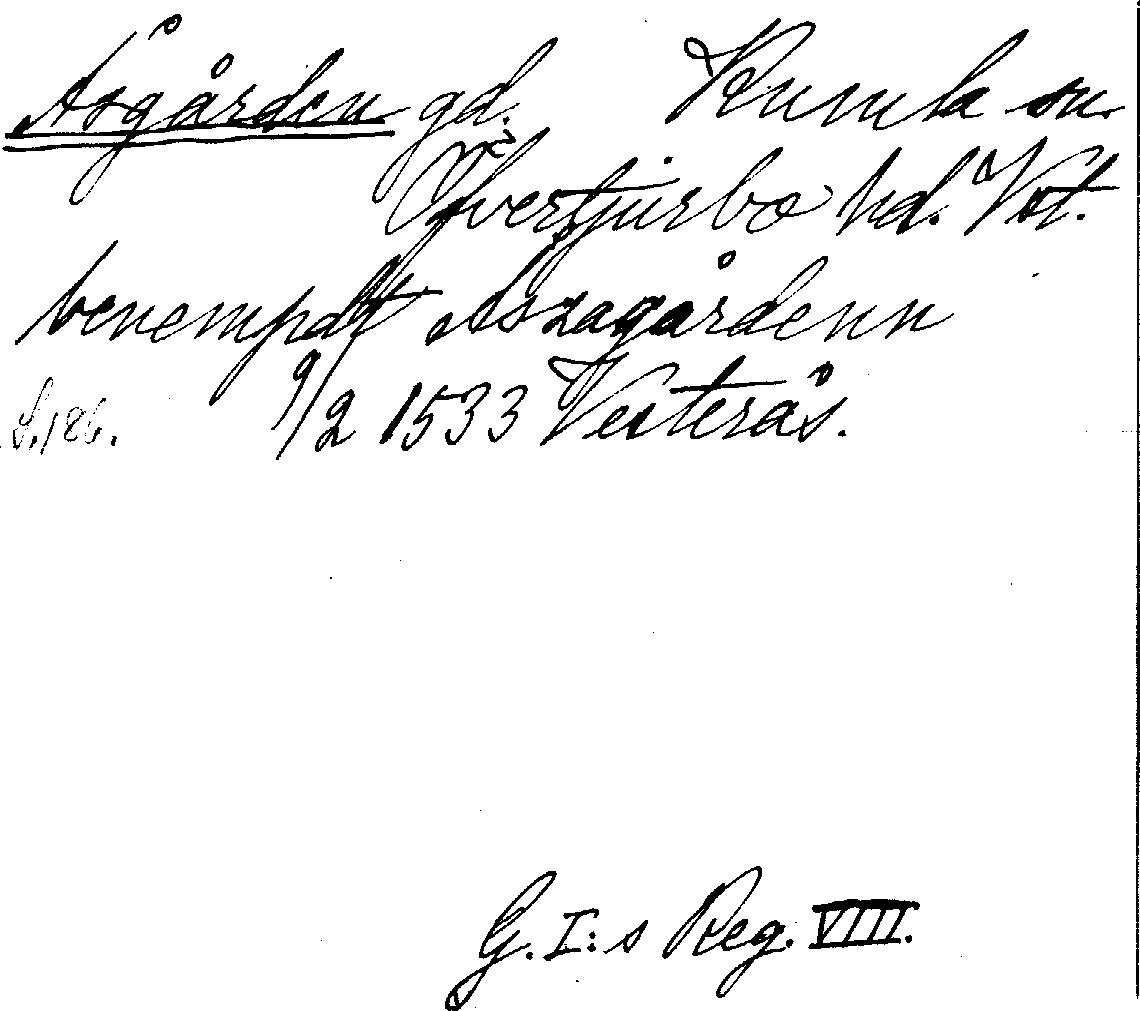 Åsgården gd. Kumla sn.
Öfvertjurbo hd. Vst.
benempdt Åszagårdenn
S. 186. 9/2 1533 Vesterås.
G. I:s Reg. VIII.